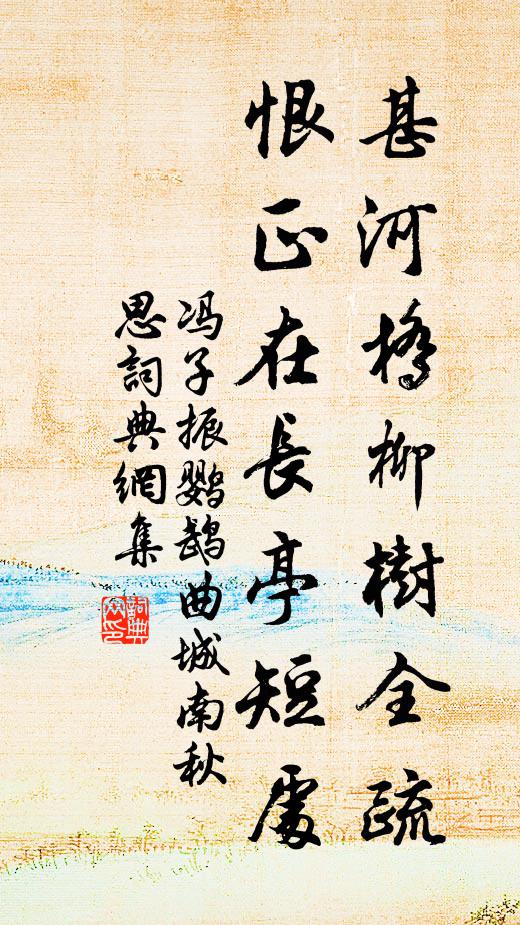 甚河橋柳樹全疏
恨正在長亭短處
冯子振鹦鹉曲城南秋
思詞典網集